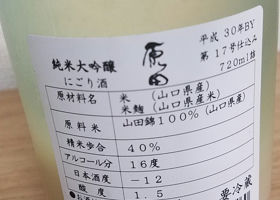 原田
平成30年BY
第17号仕込み
720ml詰
純米大吟醸
にごり酒
原材料名 米（山口県産）
米麹（山口県産米）
原料米 山田錦100％（山口県産）
精米歩合 40％
アルコール分 16度
日本酒度 −12
酸度 1.5
要冷蔵